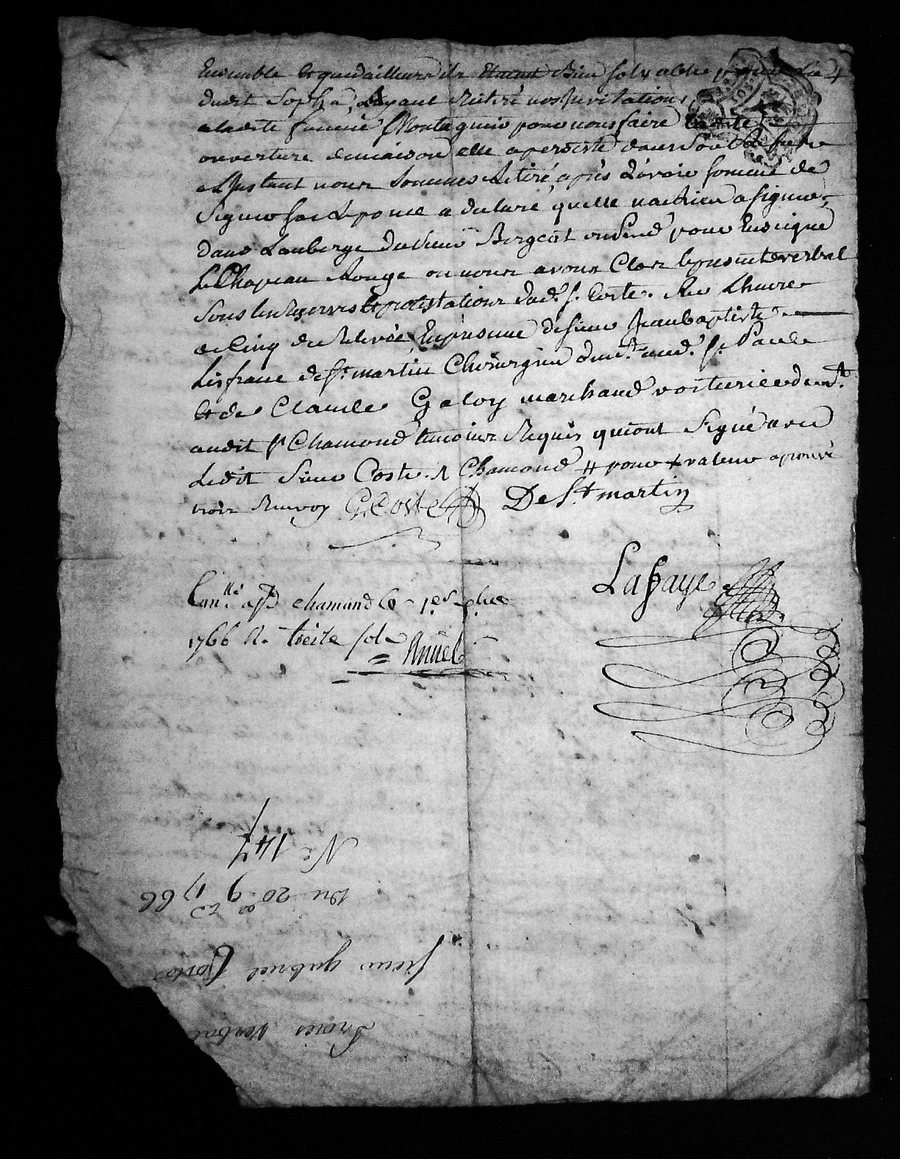 Ensemble et que dailleurs ils etaient Bien solvable pour la +
dudit Sopha, Ayant Reitéré nos Invitations
a ladite femme Montagnie pour nous faire
ouverture de maison elle a persisté dans son Refus
a l'instant nous sommes Retiré, après L'avoir sommé de
Signer sa Reponse a déclaré quelle na Rien a signer,
dans Lauberge du sieur Bergeat ou pend pour Enseigne
Le Chapeau Rouge ou nous avons Clos le present verbal
Sous les Reserves et protestations dud. s. Coste. Sur Lheure
de Cinq de Relevée En presence de sieur Jean baptiste
Lefranc de St. martin Chirurgien dud. s. Paule
Et de Claude Galoy marchand voiturier de
audit St Chamond temoins Requis qui ont Signé avec
Ledit Sieur Coste. A Chamond # pour + valeur aprouvé
trois Renvoy G. Coste De St martin
Laffaye
Con.lle a St chamond le 1er
1766 R. treize sols
Anuel
Procès verbal
sieur gabriel Coste
Du 20 9bre 1766
No 147